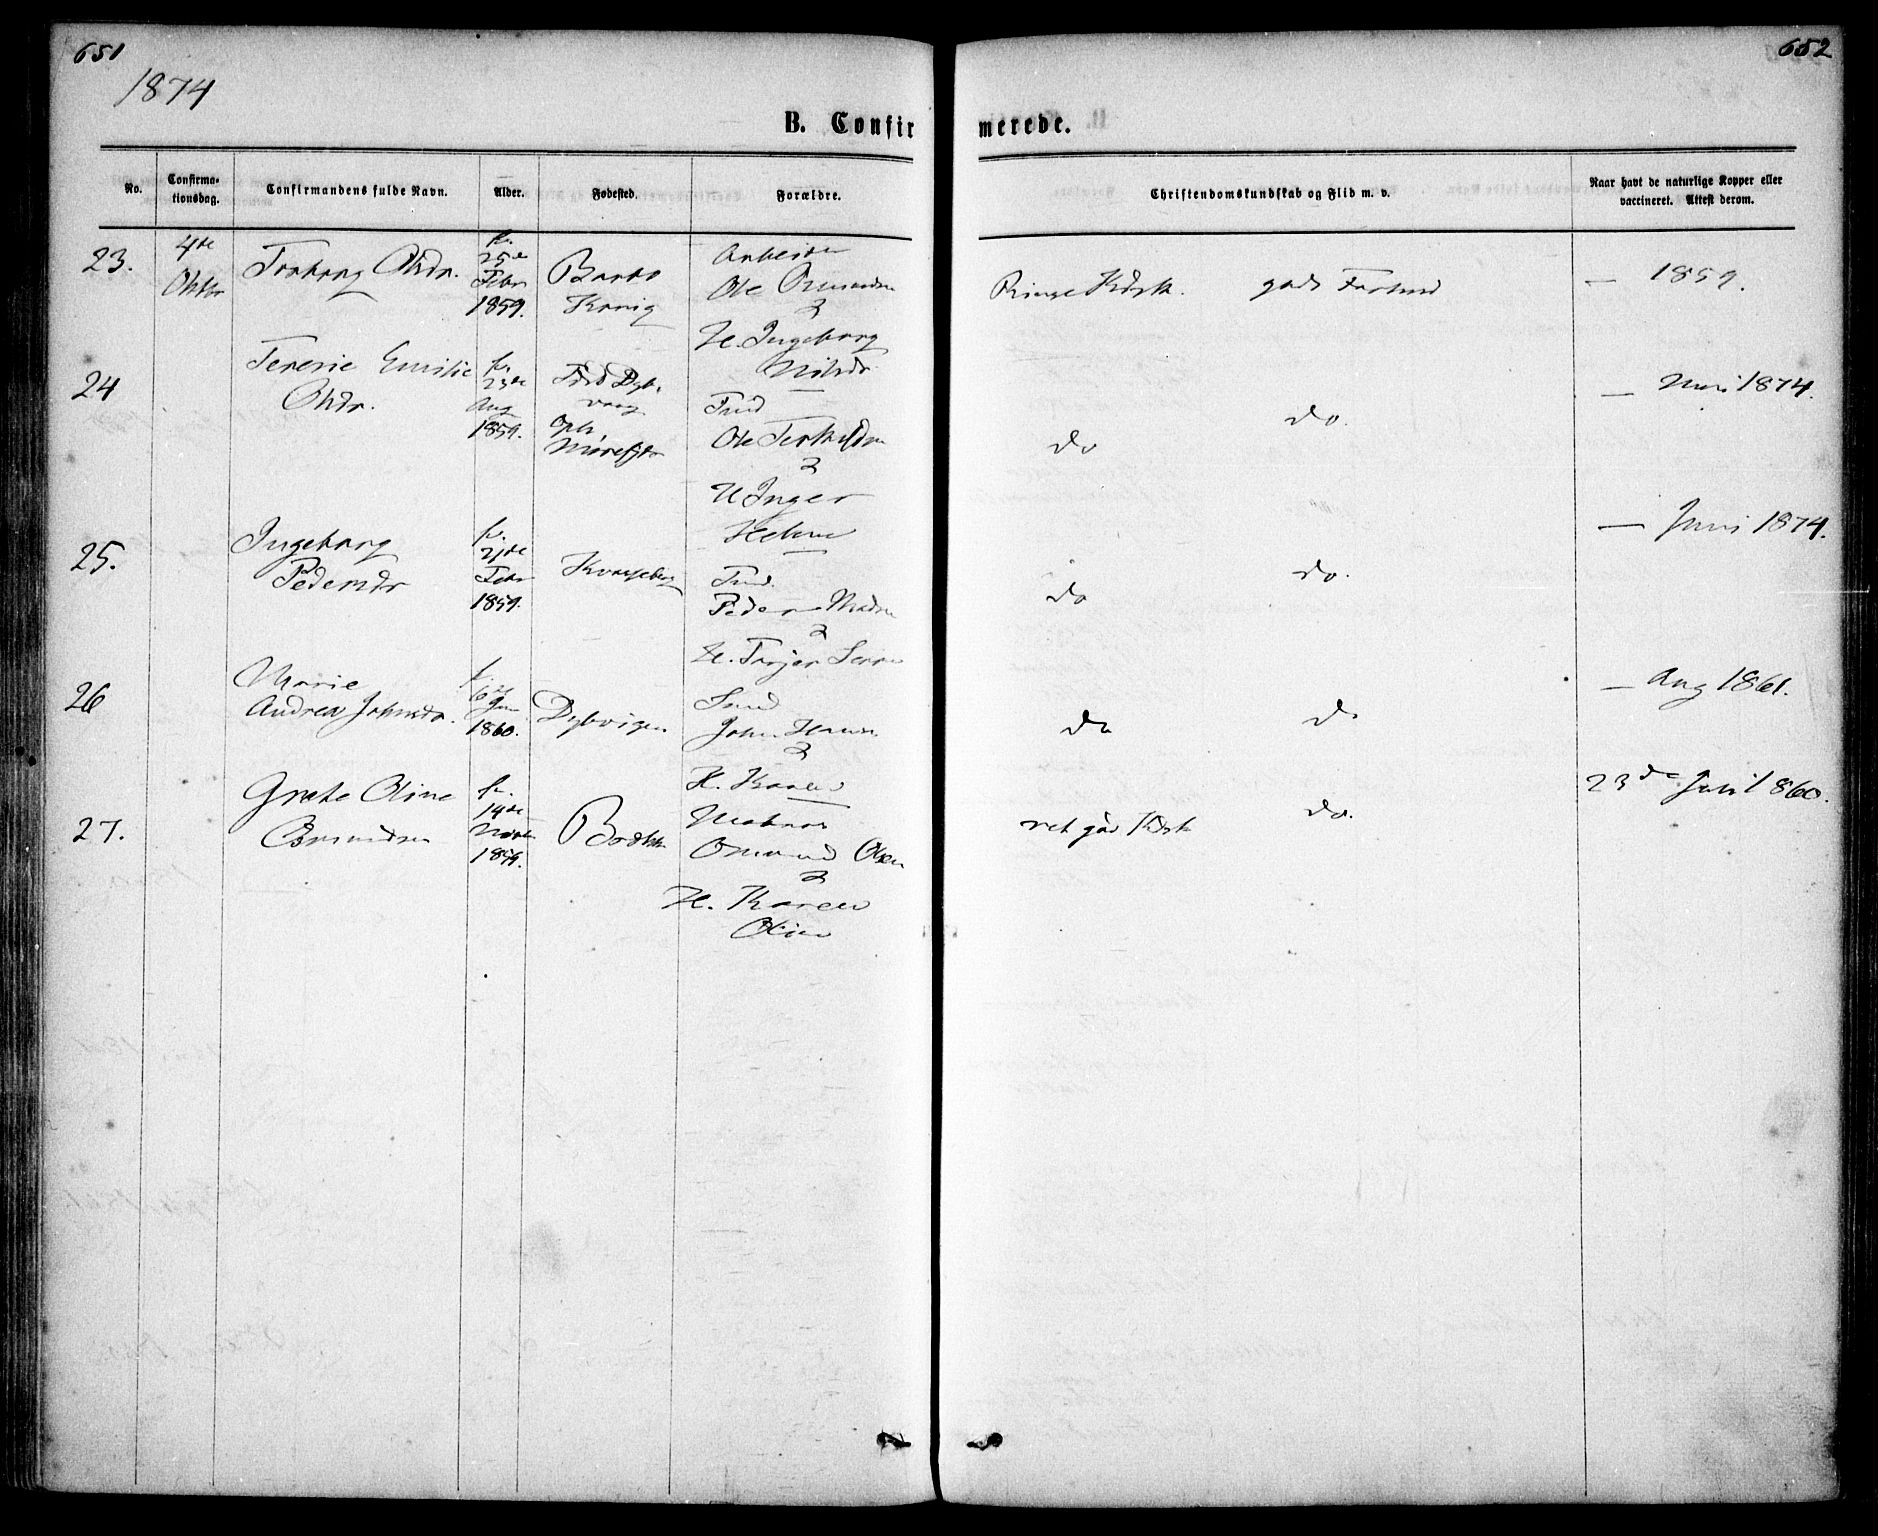 651
652
1874
B. Confir
merede.
No.
Confirma-
tionsdag.
Confirmandens fulde Navn.
Alder.
Fødested.
Forældre.
Christendomskundskab og Flid m. v.
Naar havt de naturlige Kopper eller
vaccineret. Attest derom.
23.
4de
Oktbr
Olsdr.
f.
25de
Febr
1859.
Arbeider
Ole
&
H. Ingeborg
Nilsdr
Ringe Kdsk. gode Forhold
— 1859.
24
Teresie Emilie
Olsdr.
f.
23de
Aug
1859.
Ole Terkelsen
&
H Inger
Helene
do
do.
— Juni 1874.
25.
Ingeborg
Pedersdr
f.
21de
Febr
1859.
Peder Madsn
&
H.
do
do.
— Juni 1874.
26
Marie
Andrea Johnsdr.
f.
16de
Jan
1860.
Dybvigen
John Hansn
&
H. Karen
do
do
— Aug 1861.
27.
Grethe Oline
Osmundsdr
f.
14de
Novbr
1859.
Matros
Osmund Olsen
&
H. Karen
Oline
ret god Kdsk
do.
23de Juli 1860.